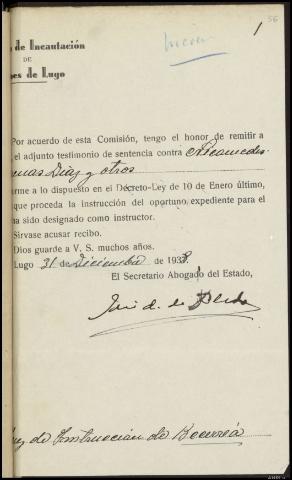 56
1
de Incautación
DE
es de Lugo
Por acuerdo de esta Comisión, tengo el honor de remitir a
el adjunto testimonio de sentencia contra Nicomedes
Díaz y otros
rme a lo dispuesto en el Decreto-Ley de 10 de Enero último,
que proceda la instrucción del oportuno expediente para el
ha sido designado como instructor.
Sírvase acusar recibo.
Dios guarde a V. S. muchos años.
Lugo 31 de Diciembre de 1938
El Secretario Abogado del Estado,
ez de Instrucción de Becerreá